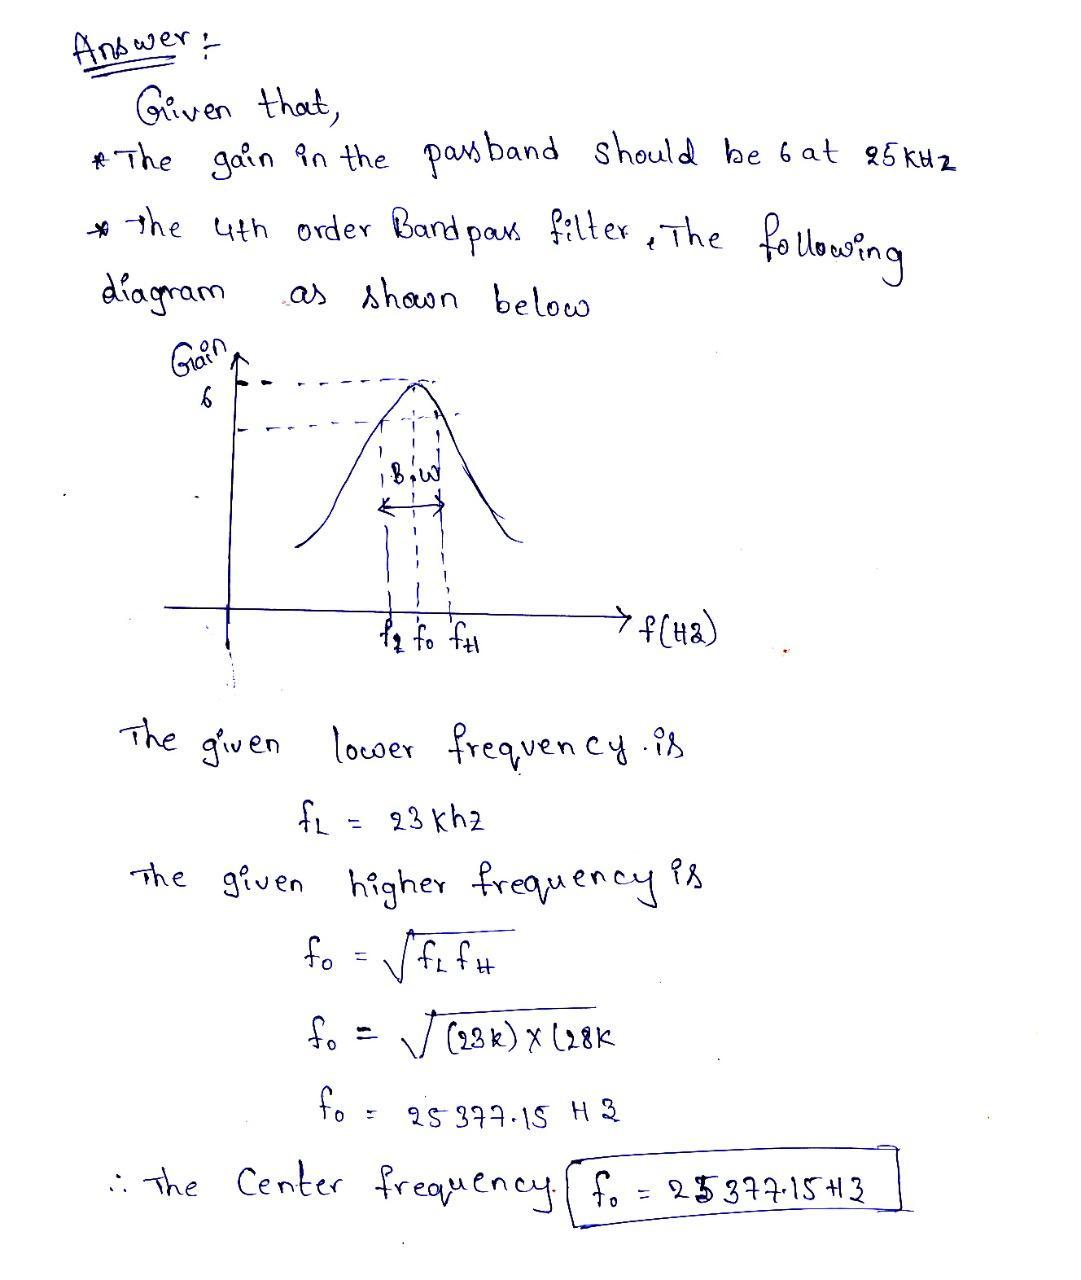 Answer :-
Given that,
* The gain in the passband should be 6 at 25 KHz
* The 4th order Bandpass filter, The following
diagram as shown below
Gain
6
B.W
fL fo fH
f(Hz)
The given lower frequency is
fL = 23 khz
The given higher frequency is
fo = √fL fH
fo = √(23k) x (28K
fo = 25377.15 Hz
∴ The Center frequency fo = 25377.15 Hz